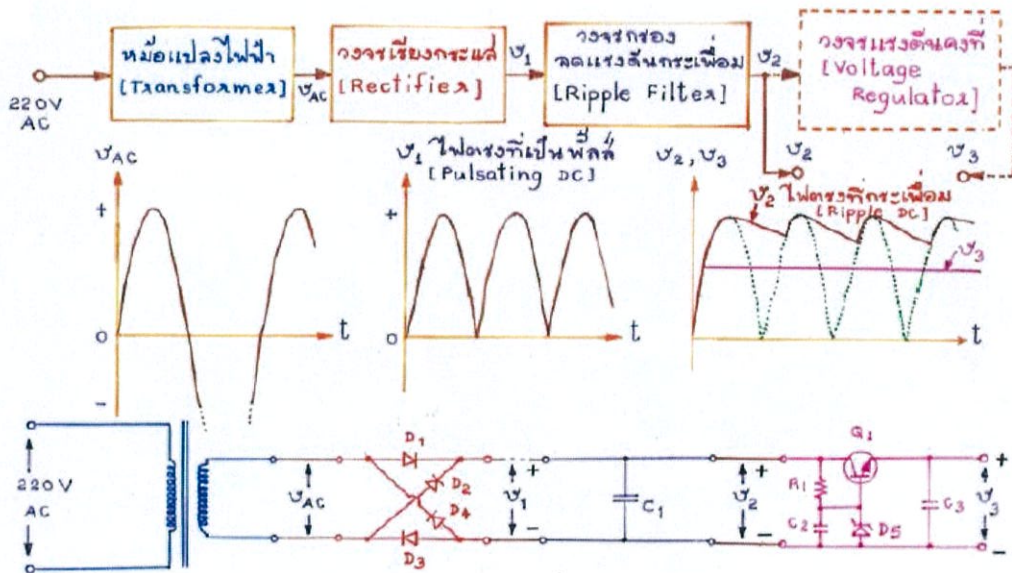 220V
AC
หม้อแปลงไฟฟ้า
[Transformer]
υAC
วงจรเรียงกระแส
[Rectifier]
υ1
วงจรกรอง
ลดแรงดันกระเพื่อม
[Ripple Filter]
υ2
วงจรแรงดันคงที่
[Voltage
Regulator]
υ2
υ3
υAC
+
0
-
t
υ1 ไฟตรงที่เป็นพัลส์
[Pulsating DC]
+
0
t
υ2, υ3
υ2 ไฟตรงที่กระเพื่อม
[Ripple DC]
υ3
t
220V
AC
υAC
D1
D2
D4
D3
+
υ1
-
C1
+
υ2
-
Q1
R1
C2
D5
C3
+
υ3
-